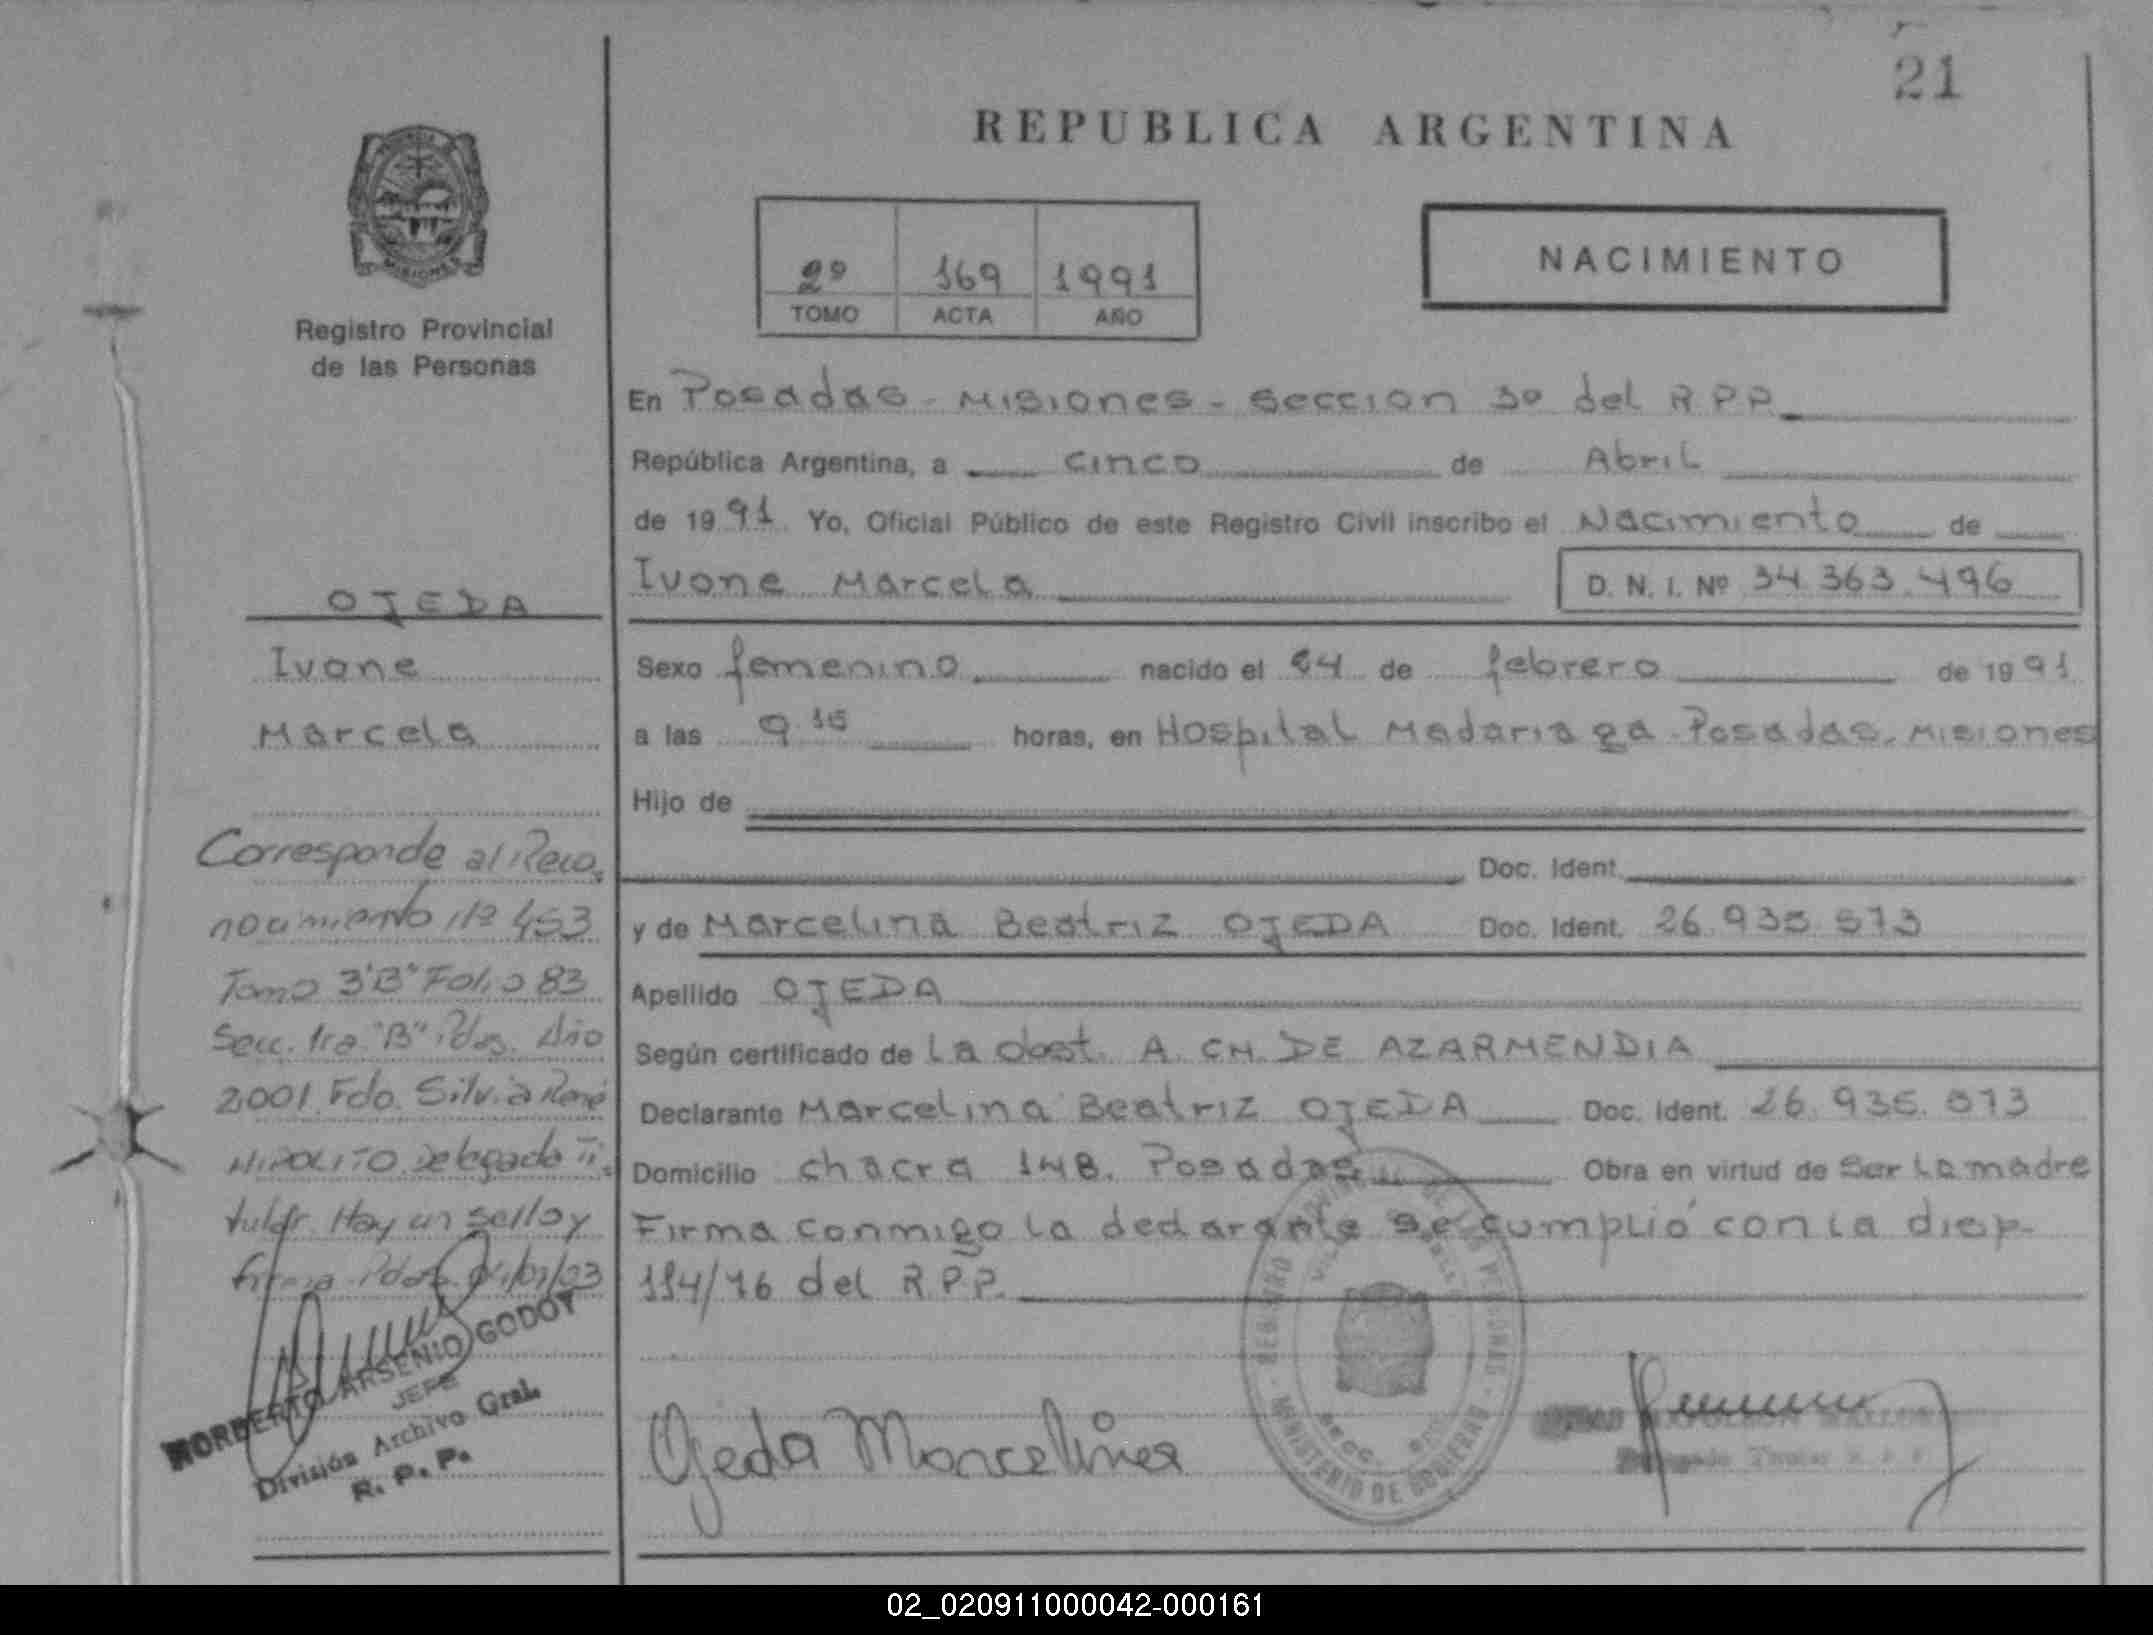 21
REPUBLICA ARGENTINA
MISIONES
Registro Provincial
de las Personas
2º 169 1991
TOMO ACTA AÑO
NACIMIENTO
En Posadas - Misiones - Seccion 3º del R P P.
República Argentina, a cinco de Abril
de 1991 Yo, Oficial Público de este Registro Civil inscribo el Nacimiento de
Ivone Marcela D. N. I. Nº 34.363.496
Sexo femenino nacido el 24 de febrero de 1991
a las 9 15 horas, en Hospital Madariaga Posadas. Misiones
Hijo de
Doc. Ident.
y de Marcelina Beatriz OJEDA Doc. Ident. 26.935.573
Apellido OJEDA
Según certificado de La obst. A. CH. DE AZARMENDIA
Declarante Marcelina Beatriz OJEDA Doc. Ident. 26.935.573
Domicilio chacra 148. Posadas Obra en virtud de Ser La madre
Firma conmigo la declarante se cumplió con la disp.
114/76 del R.P.P.
OJEDA
Ivone
Marcela
Corresponde al Reco.
nocimiento Nº 453
Tomo 3"B" Folio 83
Secc. 1ra "B" Pdas. Año
2001 Fdo. Silvia René
HIPOLITO Delegado Ti.
tular. Hay un sello y
firma Pdas.
NORBERTO ARSENIO GODOY
JEFE
División Archivo Gral.
R. P. P.
Ojeda Marcelina
DE LAS PERSONAS
MINISTERIO DE GOBIERNO
02_020911000042-000161